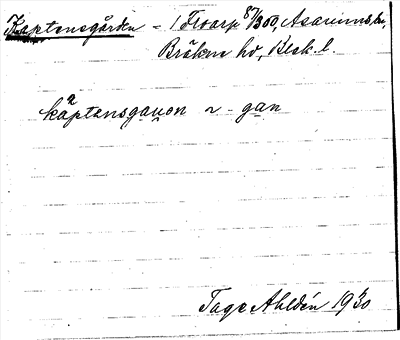 Kaptensgården - 1 Froarp 87/300, Asarums sn,
Bräkne hd, Blek. l.
käptensgauon ~ - gan
Tage Ahldén 1930